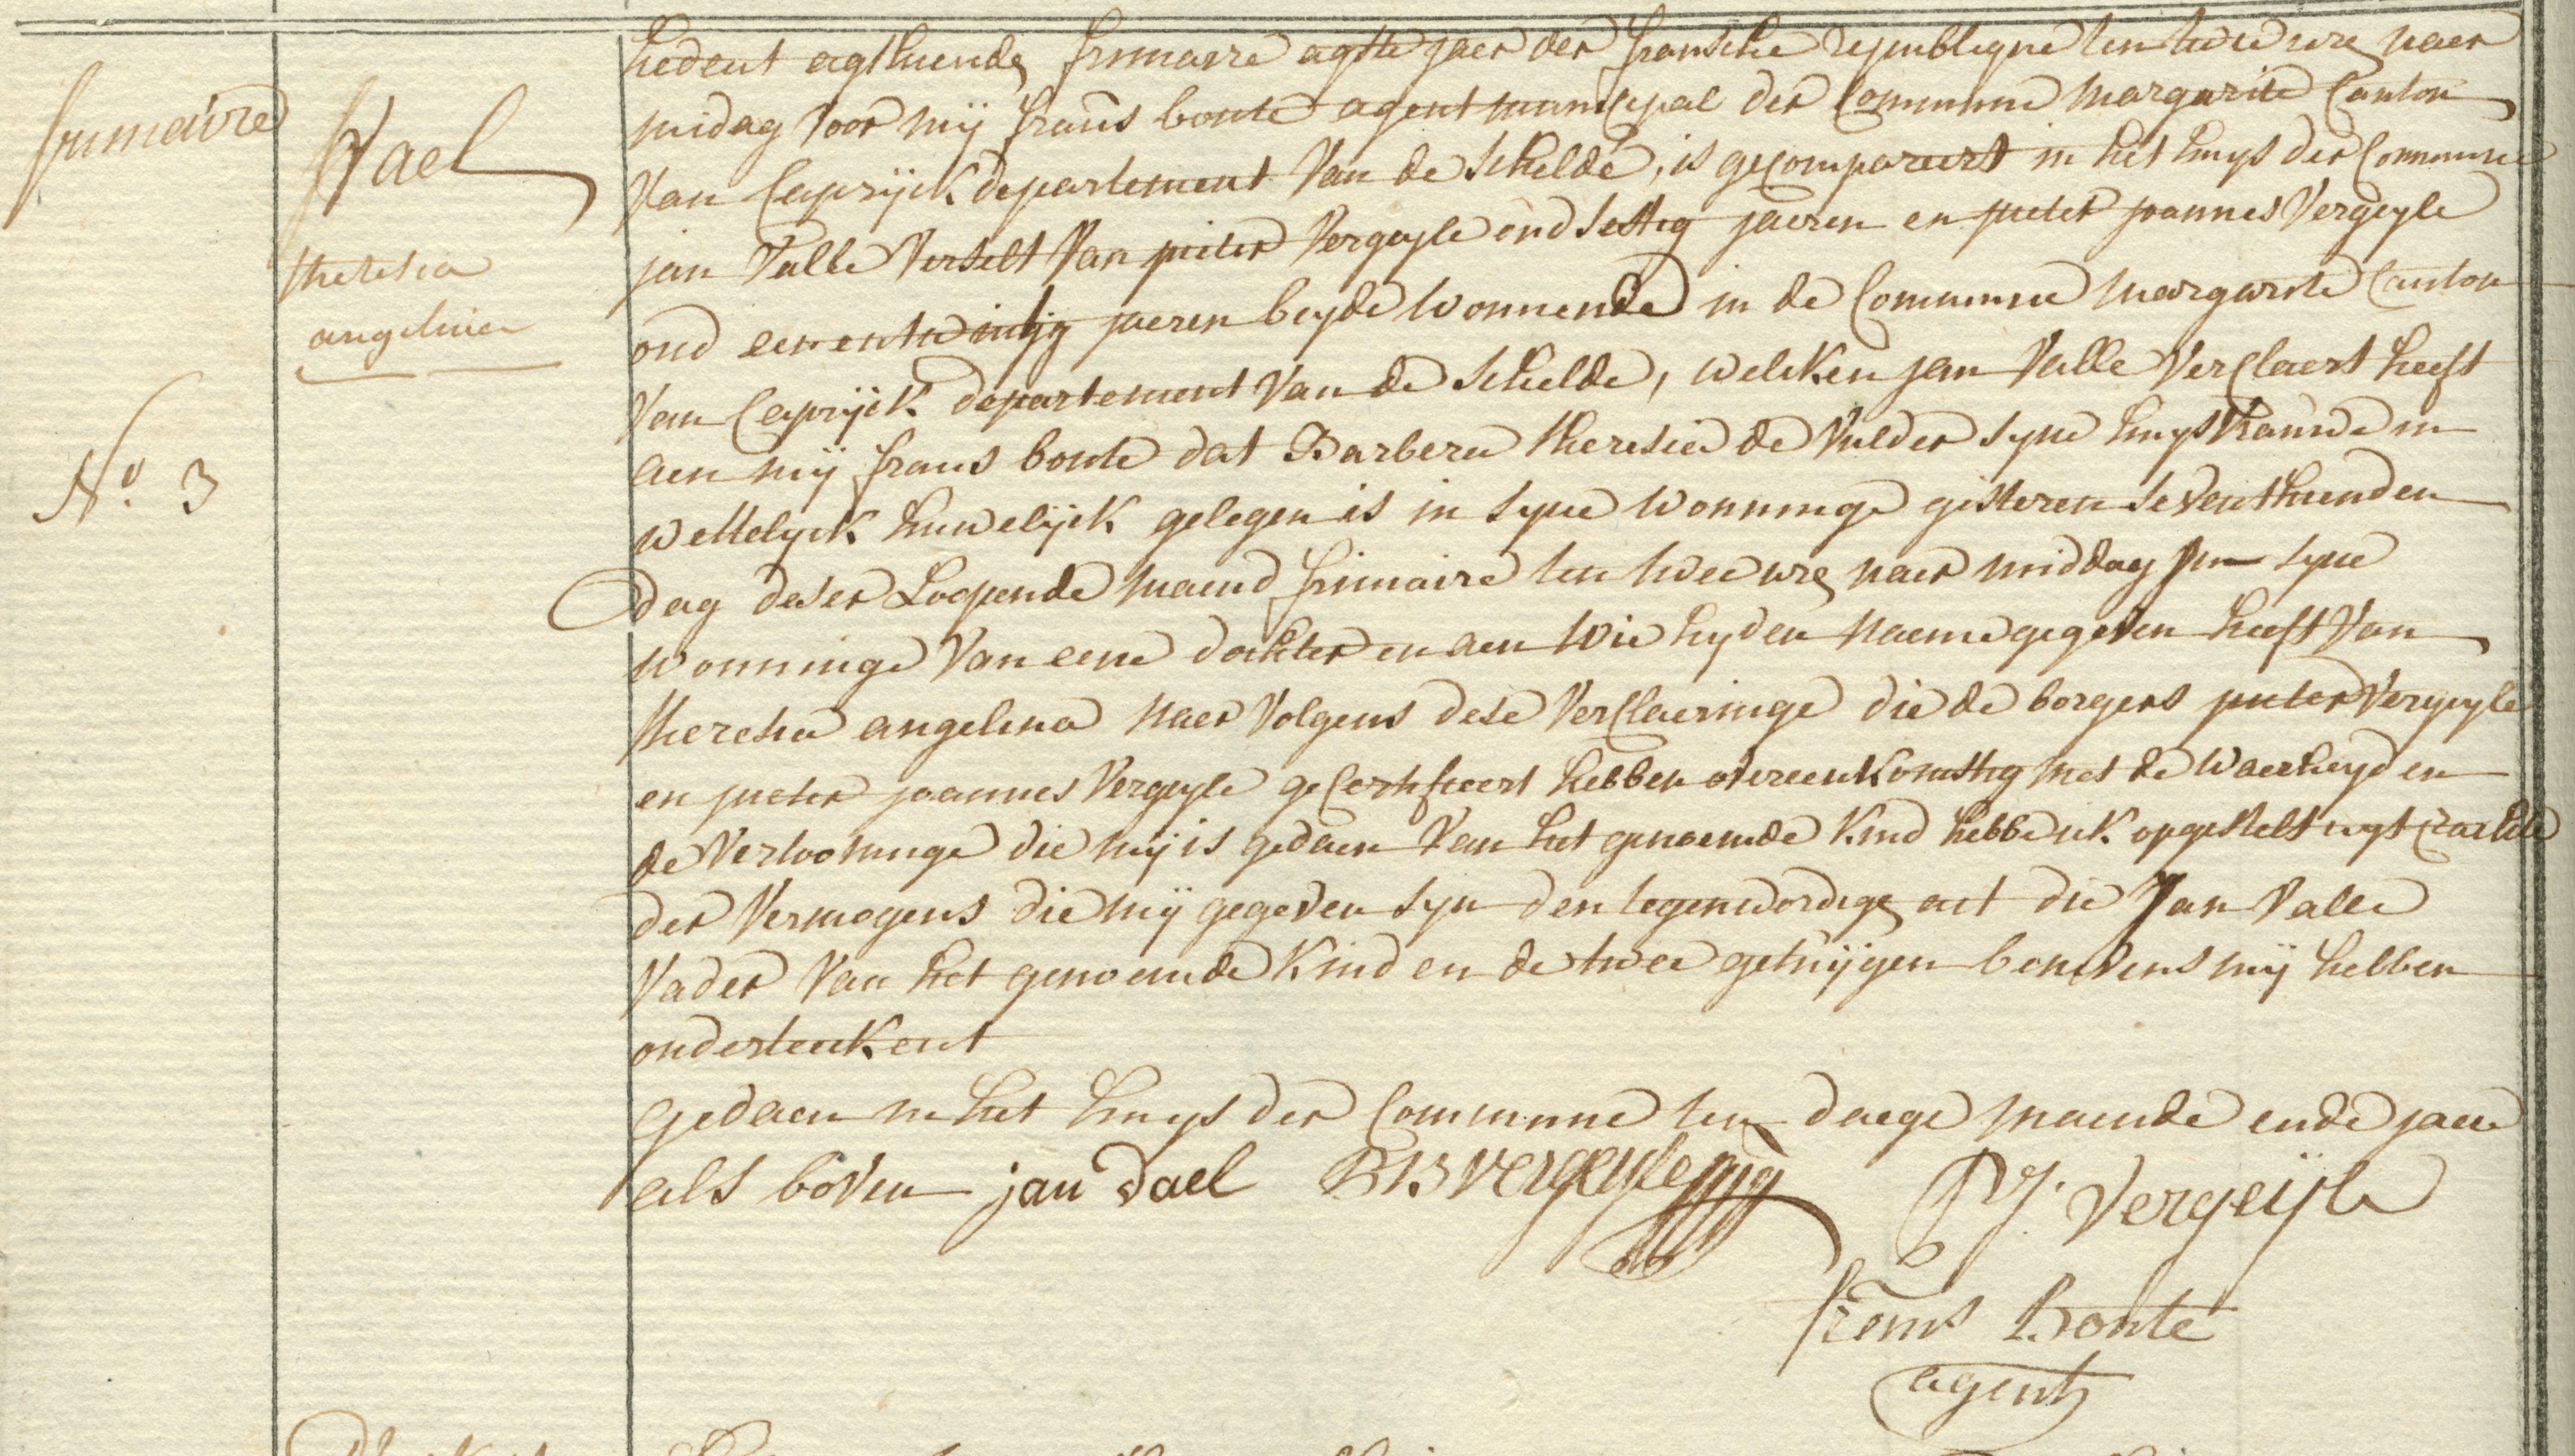 frimaire
Vael
theresia
angelina
No. 3
hedent agthiende frimaire agtste jaer der fransche republique ten twee ure naer
midag voor mij frans bonte agent municipal der Commune margarite Canton
Van Caprijck departement Van de Schelde, is gecompareert in het huys der Commune
jan Valle Verselt Van pieter Vergeyle oud sestig jaeren en pieter joannes Vergeyle
oud eenentwintig jaeren beyde wonnende in de Commune margarite Canton
Van Caprijck departement Van de Schelde, welcken jan Valle Verclaert heeft
aen mij frans bonte dat Barbera theresia de Mulder syne huysvrauwe in
wettelyck huwelijck gelegen is in syne wonninge gisteren seventhienden
dag deser Loopende maend frimaire ten twee ure naer middag in syne
wonninge Van eene dochter en aen wie hy den naeme gegeven heeft Van
theresia angelina naer Volgens dese Verclaeringe die de borgers pieter Vergeyle
en pieter joannes Vergeyle gecertifieert hebben overeenkomstig met de waerheyd en
de Vertooninge die mij is gedaen Van het genoemde kind hebbe ick opgestelt uyt crachte
der Vermogens die mij gegeven syn den tegenwordige act die Jan Valle
Vader Van het genoemde kind en de twee getuijgen benevens mij hebben
onderteekent
gedaen in het huys der Commune ten daege maende ende jaere
als boven jan Vael Vergeyle
P J. Vergeijle
frans Bonte
agent